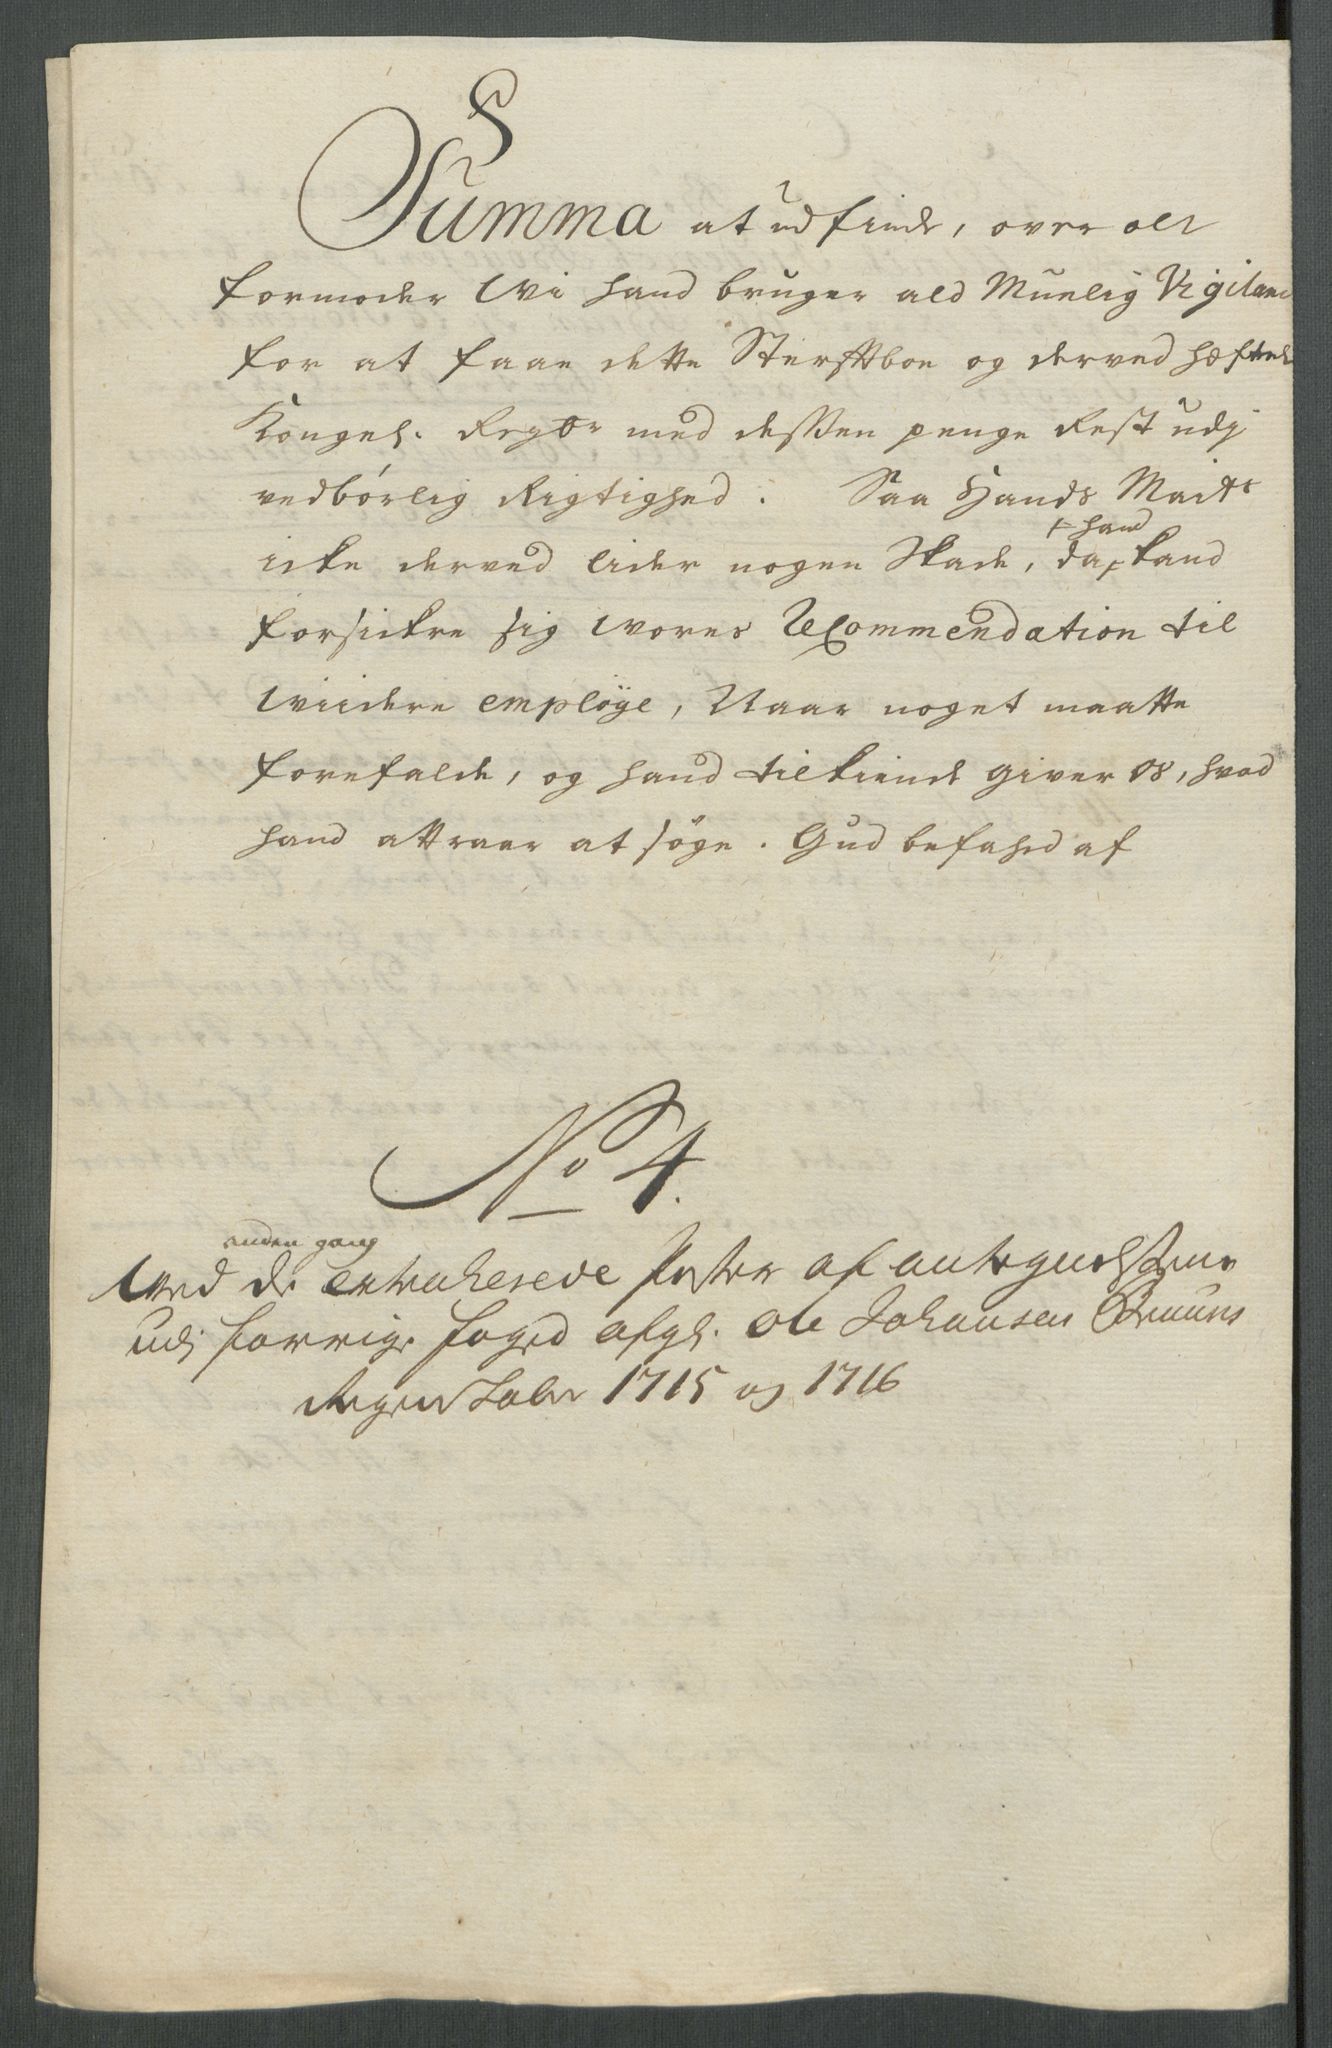 Summa at udfinde, over alt
formoder Wi hand bruger ald Muelig Vigilance
for at faae dette Sterfboe og derved hæftende
Kongel. Regſk med deſſen penge Rest udj
vedbörlig Rigtighed. Saa Hands Maits
+ hand
icke derved lider nogen Skade, da + kand
forsickre sig Wores Recommendation til
Wiidere emplöye, Naar noget maatte
forefalde, og hand tilkiende giver os, hvad
hand attraar at söge. Gud befahed af
No 4.
anden gang
Med de extraherede Poster af antegnelserne
udj forrige foged afgl. Ole Johansen Bruuns
Regenskaber 1715 og 1716